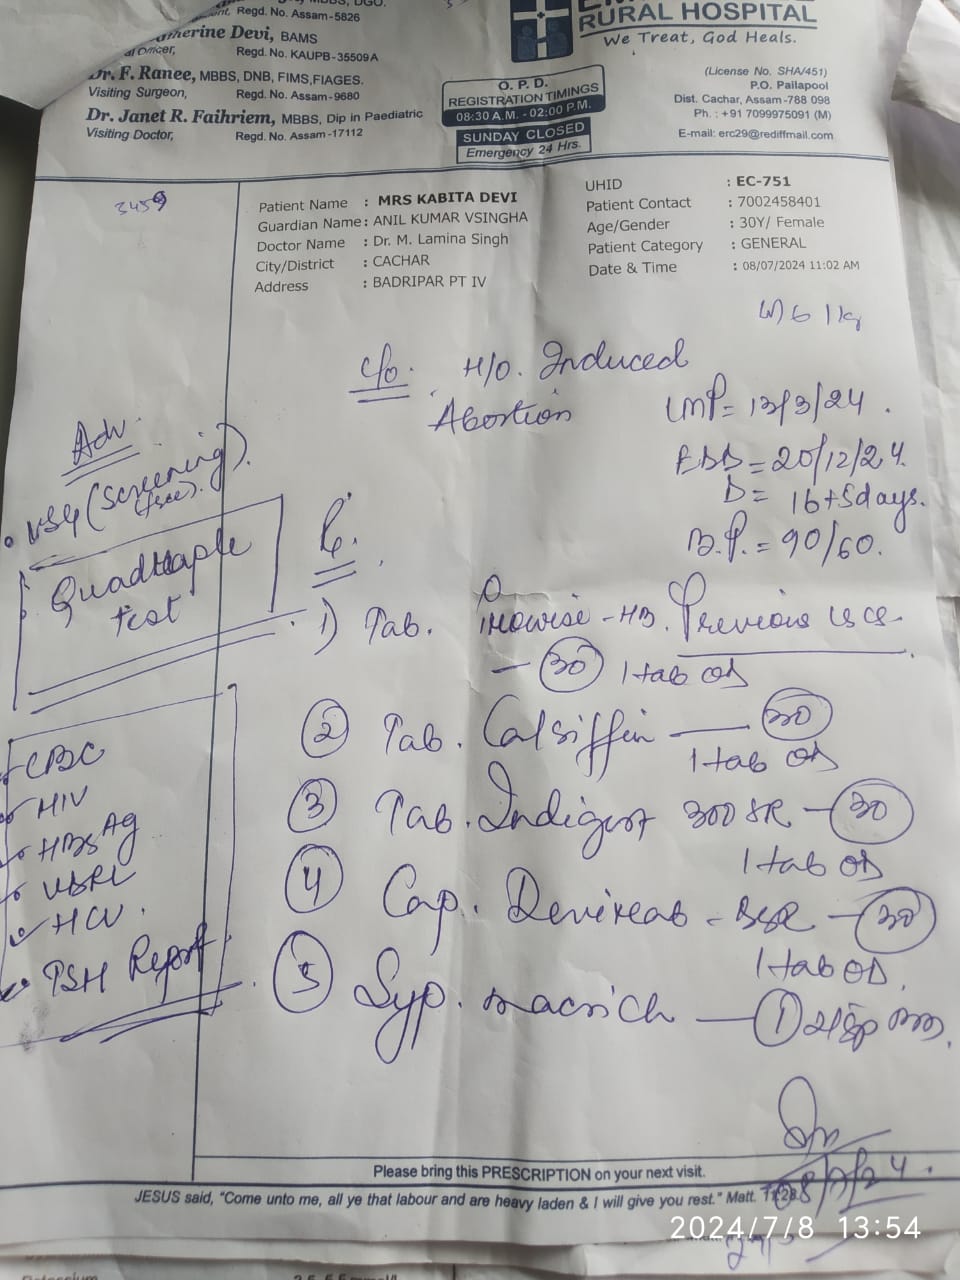 Regd. No. Assam-5826
herine Devi, BAMS
al Officer, Regd. No. KAUPB-35509A
Dr. F. Ranee, MBBS, DNB, FIMS,FIAGES.
Visiting Surgeon, Regd. No. Assam-9680
Dr. Janet R. Faihriem, MBBS, Dip in Paediatric
Visiting Doctor, Regd. No. Assam-17112
O. P. D.
REGISTRATION TIMINGS
08:30 A.M. - 02:00 P.M.
SUNDAY CLOSED
Emergency 24 Hrs.
RURAL HOSPITAL
We Treat, God Heals.
(License No. SHA/451)
P.O. Pailapool
Dist. Cachar, Assam-788 098
Ph. : +91 7099975091 (M)
E-mail: erc29@rediffmail.com
3459
Patient Name : MRS KABITA DEVI
Guardian Name : ANIL KUMAR VSINGHA
Doctor Name : Dr. M. Lamina Singh
City/District : CACHAR
Address : BADRIPAR PT IV
UHID : EC-751
Patient Contact : 7002458401
Age/Gender : 30Y/ Female
Patient Category : GENERAL
Date & Time : 08/07/2024 11:02 AM
c/o. H/O. Induced
Abortion
LMP = 13/3/24.
EDD = 20/12/24.
D = 16+5days.
B.P. = 90/60.
Adv.
USG (Screening)
Quadraple
test
CBC
HIV
HBsAg
VDRL
HCV.
TSH Report
1) Tab. - HB. Previous LSCS.
- 30 1 tab OD
2 Tab. 30
1 tab OD
3 Tab. 300 SR - 30
1 tab OD
4 Cap. - DSR - 30
1 tab OD.
5 Syp. - 1
08/7/24.
Please bring this PRESCRIPTION on your next visit.
JESUS said, "Come unto me, all ye that labour and are heavy laden & I will give you rest." Matt. 11:28
2024/7/8 13:54